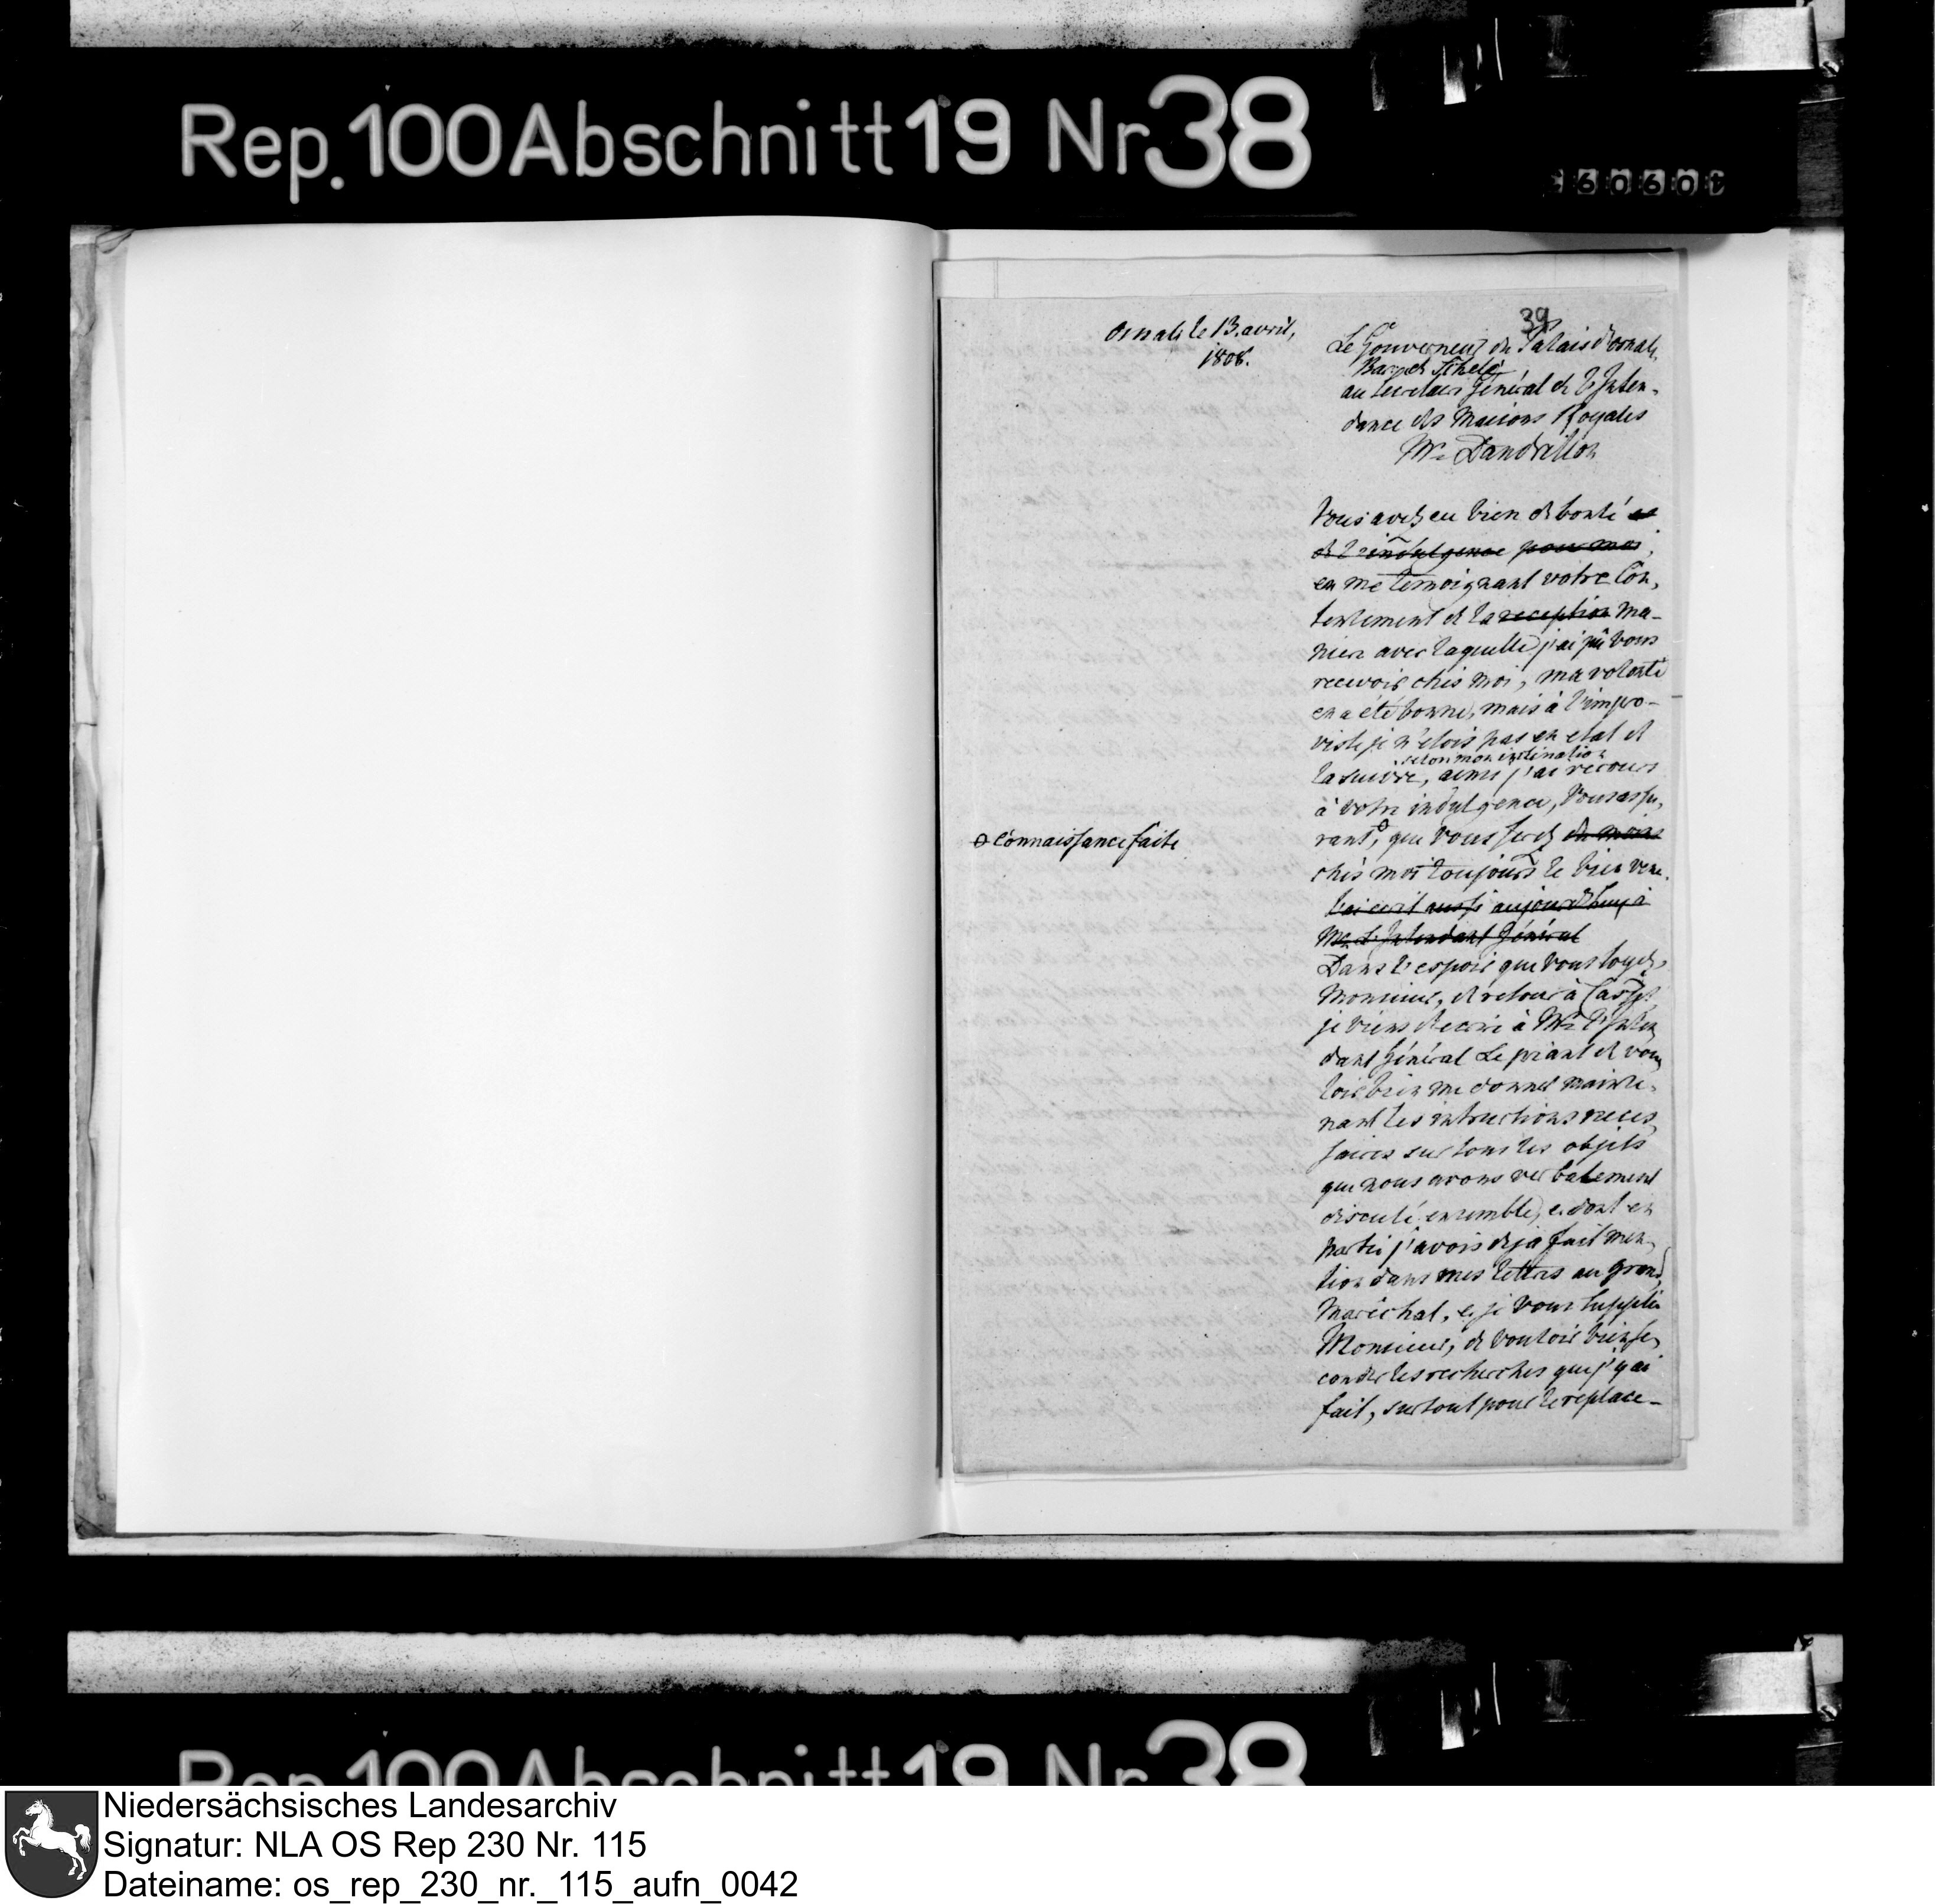 Rep. 100 Abschnitt 19 Nr 38
60601
39
Osnab. le 13. avril,
1808.
Le Gouverneur du Palais d'osnab.
Baron de Schele
au Secretaire Général de l'Inten-
dance des Maisons Royales
Mr. Dandrillon
Vous avez eu bien de bonté et
de l'indulgence pour moi,
en me temoignant votre Con,
tentement de la reception ma-
niere avec laquelle j'ai pû vous
recevoir chés moi, ma volonté
en a été bonne, mais à l'impro-
viste je n'etois pas en etat de
selon mon inclination
la suivre, ainsi j'ai recours
à votre indulgence, Vous assu,
rant, que vous serez du moins
o Connaissance faite
chés moi toujours le bien venu.
J'ai ecrit aussi aujourdhuy à
Mr. L'Intendant Général
Dans l'espoir que vous soyez,
Monsieur, de retour à Cassel
je viens d'ecrire à Mr. l'Inten,
dant Général Le priant de vou,
loir bien me donner mainte,
nant les intructions neces,
saires sur tous les objets
que nous avons verbalement
discuté ensemble, e. dont en
partie j'avois deja fait men,
tion dans mes lettres au grand
Maréchal, e. je vous supplie
Monsieur, de vouloir bien se,
conder les recherches que j'y ai
fait, surtout pour le replace-
Rep. 100 Abschnitt 19 Nr 38
Niedersächsisches Landesarchiv
Signatur: NLA OS Rep 230 Nr. 115
Dateiname: os_rep_230_nr._115_aufn_0042